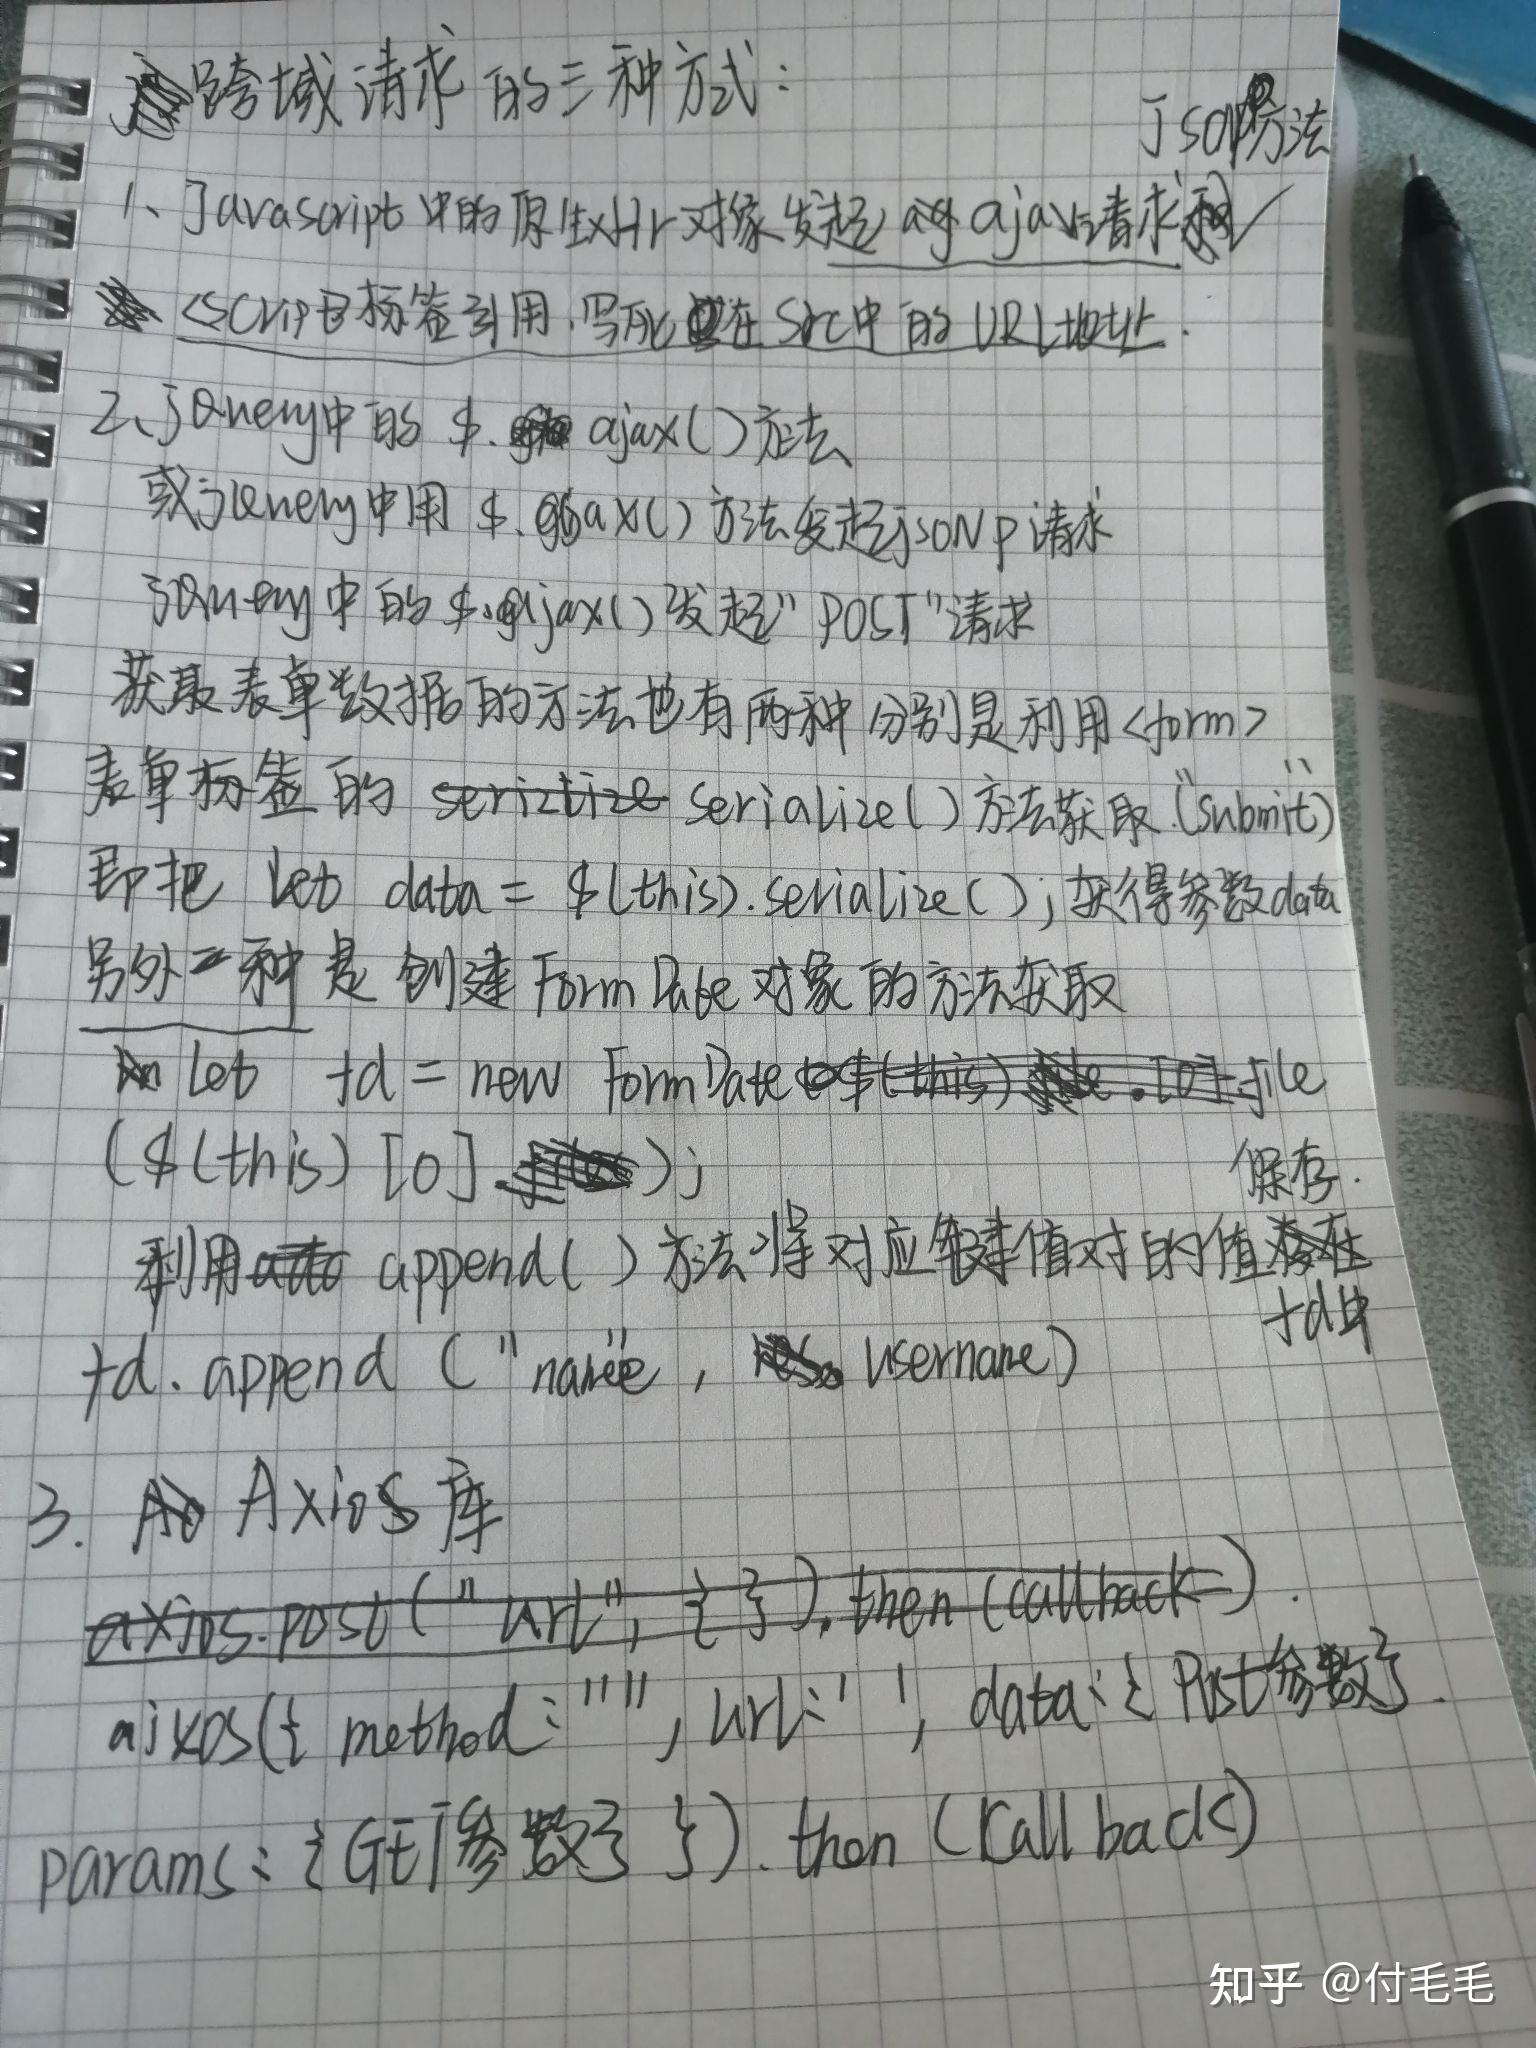 跨域请求的三种方式:
Jsonp方法
1、Javascript中的原生xHr对象发起 ajax请求和
<script>标签引用,写在src中的URL地址.
2、jQuery中的 $. ajax()方法
或jQuery中用 $.ajax()方法发起jsoNp请求
jQuery中的$.ajax()发起"POST"请求
获取表单数据的方法也有两种分别是利用<form>
表单标签的 seriztize serialize()方法获取.("submit")
即把 let data = $(this).serialize(); 获得参数data
另外一种是创建FormDate对象的方法获取
let fd = new FormDate $(this) .[0].file
($(this)[0] );
保存.
利用 append()方法将对应键值对的值存在
fd中
fd.append("name", username)
3. Axios库
axios.post("url", { }).then(callback).
aixos({ method:"", url:'', data:{Post参数}.
params:{GET参数} }).then(callback)
知乎 @付毛毛